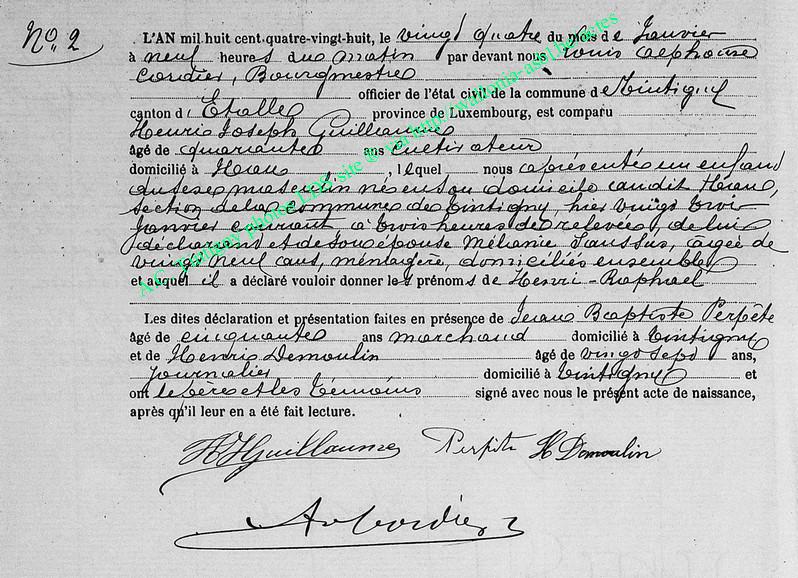 No. 2
L'AN mil huit cent quatre-vingt-huit, le vingt quatre du mois de Janvier
à neuf heures du matin par devant nous Louis Alphonse
Cordier, Bourgmestre
officier de l'état civil de la commune de Tintigny
canton d'Etalle province de Luxembourg, est comparu
Henri Joseph Guillaume
âgé de quarante ans cultivateur
domicilié à Han, lequel nous a présenté un enfant
du sexe masculin né en son domicile audit Han,
section de la commune de Tintigny, hier vingt trois
janvier courant à trois heures de relevée, de lui
déclarant et de son épouse Mélanie Saussus, âgée de
vingt neuf ans, ménagère, domiciliés ensemble
et auquel il a déclaré vouloir donner les prénoms de Henri-Raphael
Les dites déclaration et présentation faites en présence de Jean Baptiste Perpète
âgé de cinquante ans marchand domicilié à Tintigny
et de Henri Demoulin âgé de vingt sept ans,
journalier domicilié à Tintigny et
ont le père et les témoins signé avec nous le présent acte de naissance,
après qu'il leur en a été fait lecture.
HJGuillaume Perpète H Demoulin
A. Cordier
A.C. Tintigny photos LDS site ® via http://wallonia-asbl.be/actes